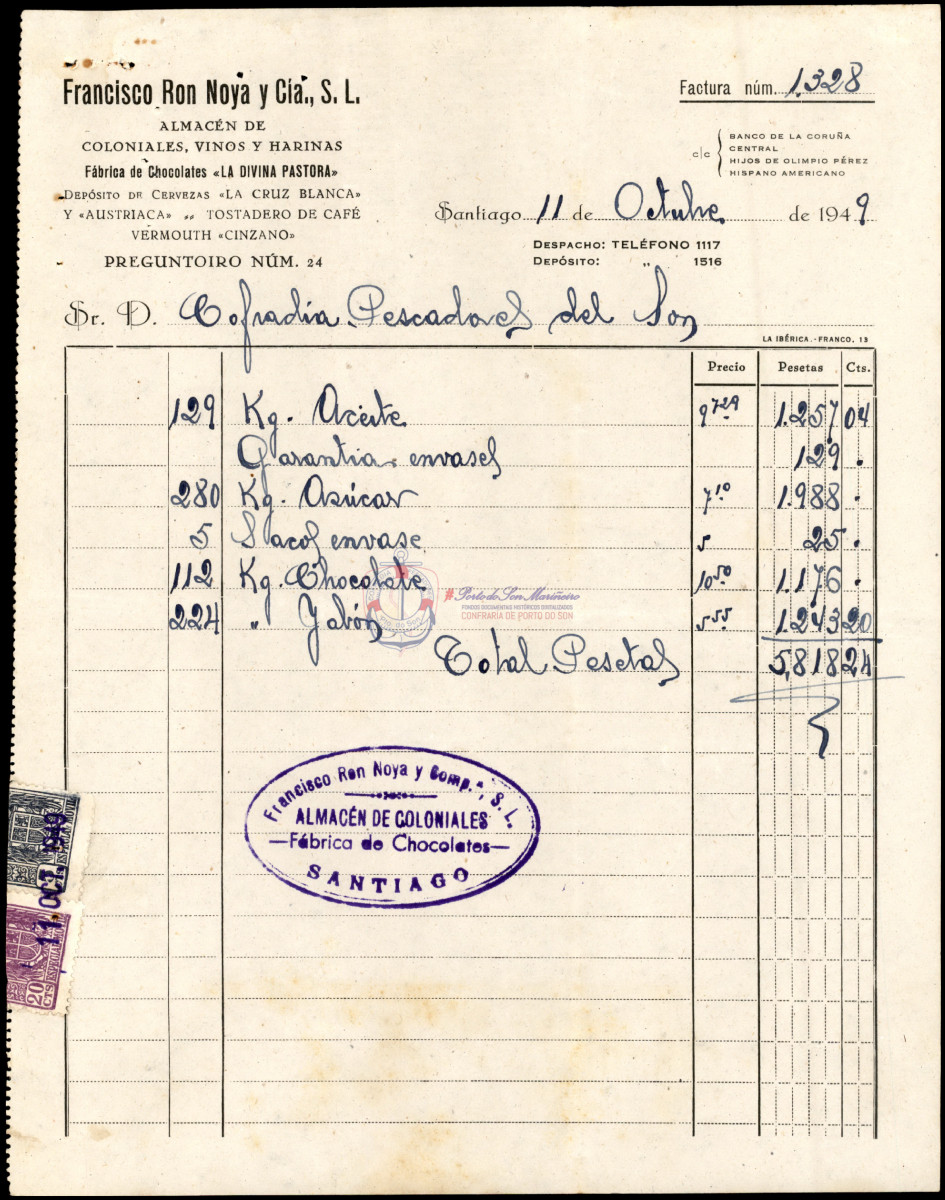 Francisco Ron Noya y Cía., S. L.
ALMACÉN DE
COLONIALES, VINOS Y HARINAS
Fábrica de Chocolates «LA DIVINA PASTORA»
DEPÓSITO DE CERVEZAS «LA CRUZ BLANCA»
Y «AUSTRIACA» „ TOSTADERO DE CAFÉ
VERMOUTH «CINZANO»
PREGUNTOIRO NÚM. 24
Factura núm. 1.328
c/c
BANCO DE LA CORUÑA
CENTRAL
HIJOS DE OLIMPIO PÉREZ
HISPANO AMERICANO
Santiago 11 de Octubre de 1949
DESPACHO: TELÉFONO 1117
DEPÓSITO: „ 1516
Sr. D. Cofradia Pescadores del Son
LA IBÉRICA.-FRANCO, 13
Precio Pesetas Cts.
129 Kg. Aceite 9729 1.257 04
Garantia envases 129 .
280 Kg. Azúcar 710 1.988 .
5 Sacos envase 5 25 .
112 Kg. Chocolate 1050 1.176 .
224 „ Jabón 555 1.243 20
Total Pesetas 5,818 24
#PortodoSonMariñeiro
FONDOS DOCUMENTAIS HISTÓRICOS DIGITALIZADOS
CONFRARÍA DE PORTO DO SON
Francisco Ron Noya y Comp.ª, S. L.
ALMACÉN DE COLONIALES
—Fábrica de Chocolates—
SANTIAGO
11 OCT. 1949
20
CTS